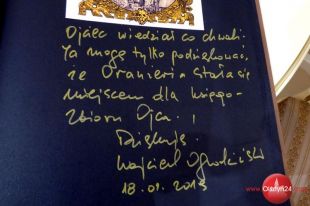 Ojciec wiedział co chwali.
Ja mogę tylko podziękować,
że Oranżeria stała się
miejscem dla księgo-
zbioru Ojca.
Dziękuję
Wojciech Ogrodziński
18.01.2013
Olsztyn24